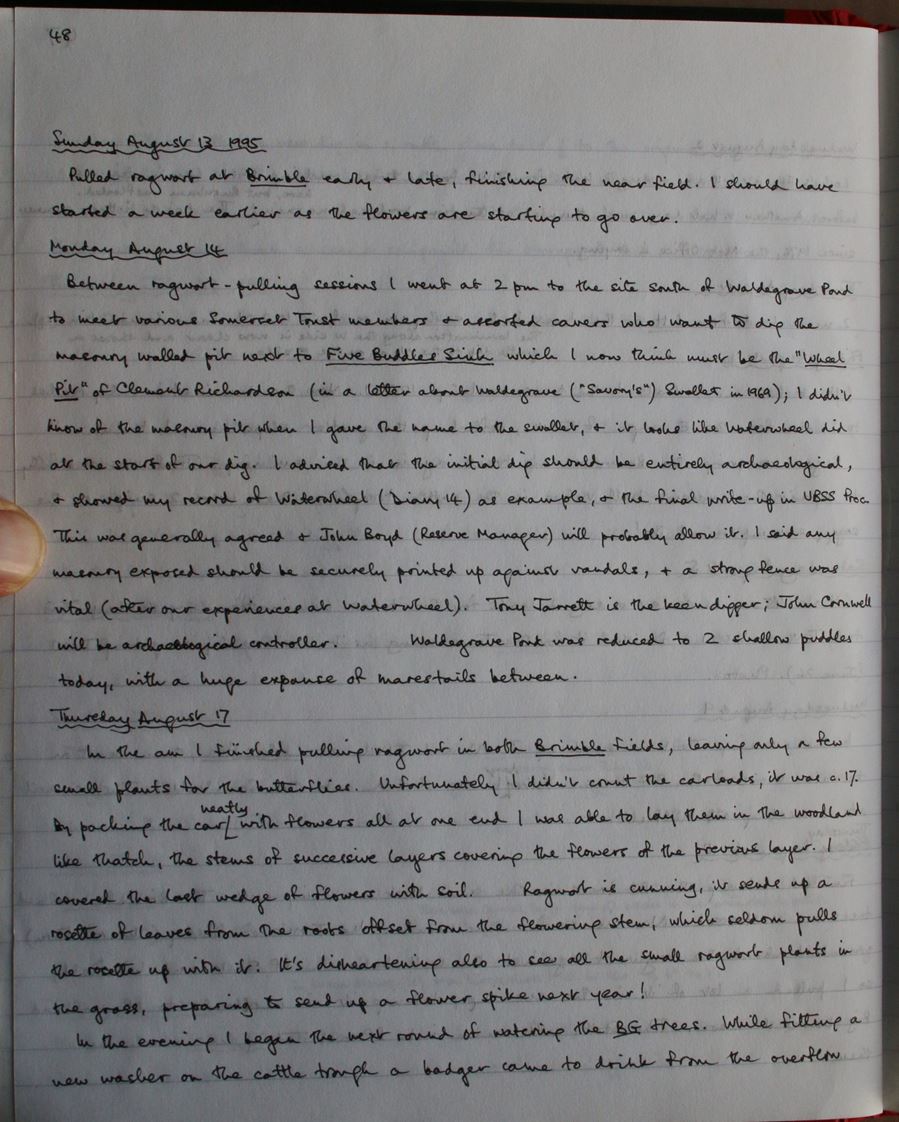 48
Sunday August 13 1995
Pulled ragwort at Brimble early & late, finishing the near field. I should have
started a week earlier as the flowers are starting to go over.
Monday August 14
Between ragwort-pulling sessions I went at 2 pm to the site south of Waldegrave Pond
to meet various Somerset Trust members & assorted cavers who want to dig the
masonry walled pit next to Five Buddles Sink which I now think must be the "Wheel
Pit" of Clement Richardson (in a letter about Waldegrave ("Savory's") Swallet in 1969); I didn't
know of the masonry pit when I gave the name to the swallet, & it looks like Waterwheel did
at the start of our dig. I advised that the initial dig should be entirely archaeological,
& showed my record of Waterwheel (Diary 14) as example, & the final write-up in UBSS Proc.
This was generally agreed & John Boyd (Reserve Manager) will probably allow it. I said any
masonry exposed should be securely pointed up against vandals, & a strong fence was
vital (after our experiences at Waterwheel). Tony Jarrett is the keen digger; John Cornwell
will be archaeological controller. Waldegrave Pond was reduced to 2 shallow puddles
today, with a huge expanse of marestails between.
Thursday August 17
In the am I finished pulling ragwort in both Brimble fields, leaving only a few
small plants for the butterflies. Unfortunately I didn't count the carloads, it was c.17.
By packing the car neatly with flowers all at one end I was able to lay them in the woodland
like thatch, the stems of successive layers covering the flowers of the previous layer. I
covered the last wedge of flowers with soil. Ragwort is cunning, it sends up a
rosette of leaves from the roots offset from the flowering stem, which seldom pulls
the rosette up with it. It's disheartening also to see all the small ragwort plants in
the grass, preparing to send up a flower spike next year!
In the evening I began the next round of watering the BG trees. While fitting a
new washer on the cattle trough a badger came to drink from the overflow